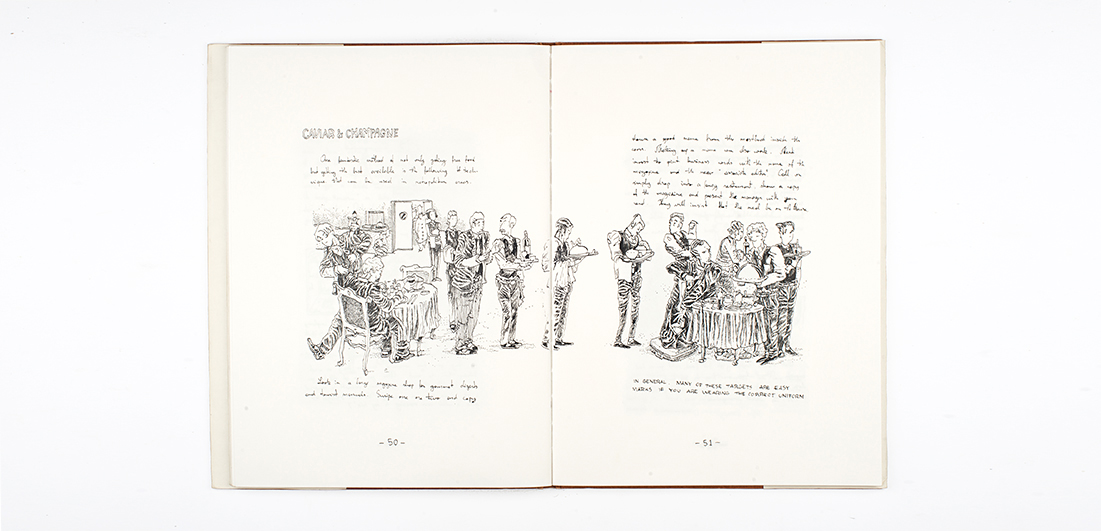 CAVIAR & CHAMPAGNE
One fantastic method of not only getting free food
but getting the best available is the following of tech-
nique that can be used in metropolitan areas.
Look in a large magazine shop for gourmet digests
and tourist manuals. Swipe one or two and copy
- 50 -
down a good name from the masthead inside the
cover. Making up a name can also work. Next
invest to print business cards with the name of the
magazine and the new "associate editor". Call or
simply drop into a fancy restaurant show a copy
of the magazine and present the manager with your
card. They will insist that the meal be on the house.
IN GENERAL, MANY OF THESE TARGETS ARE EASY
MARKS IF YOU ARE WEARING THE CORRECT UNIFORM
- 51 -